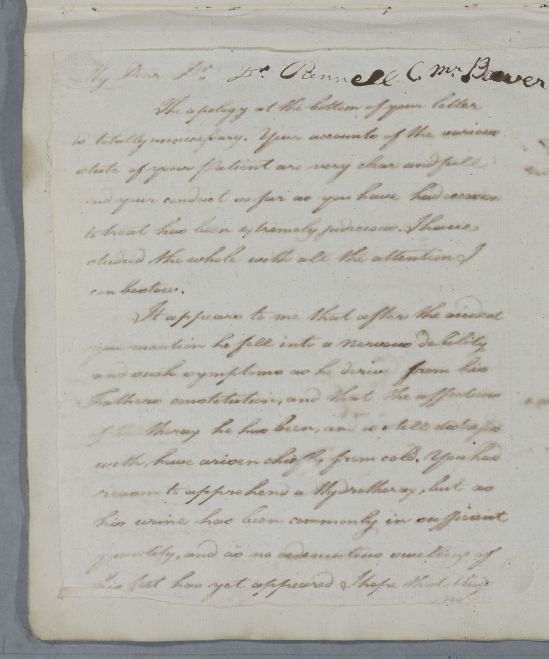 My Dear Sr. Dr. Pennell C. Mr. Bower
The apology at the bottom of your letter
is totally unnecessary. Your accounts of the various
state of your Patient are very clear and full
and your conduct so far as you have had occasion
to treat has been extremely judicious. I have
studied the whole with all the attention I
can bestow.
It appears to me that after the accident
you mention he fell into a nervous debility
and such symptoms as he derived from his
Fathers constitution, and that the affections
of the thorax he has been, and is still
with, have arisen chiefly from cold. You had
reason to apprehend a Hydrothorax, but as
his urine has been commonly in sufficient
quantity, and as no oedematous swelling of
his feet has yet appeared I hope that